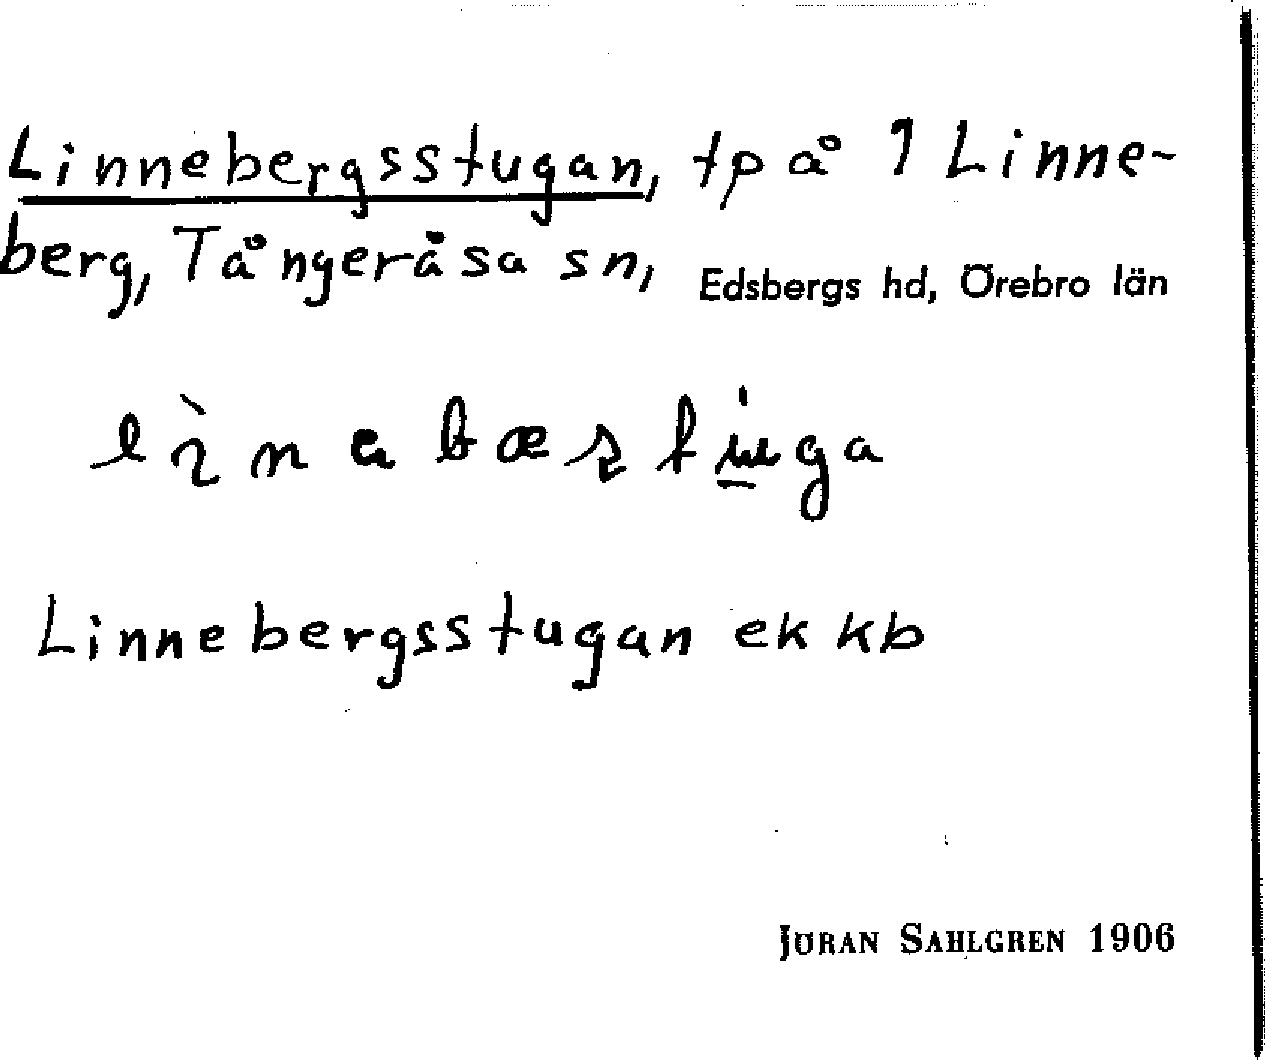 Linnebergsstugan, tp å 1 Linne-
berg, Tångeråsa sn, Edsbergs hd, Örebro län
Linnebergsstugan ek kb
JÖRAN SAHLGREN 1906